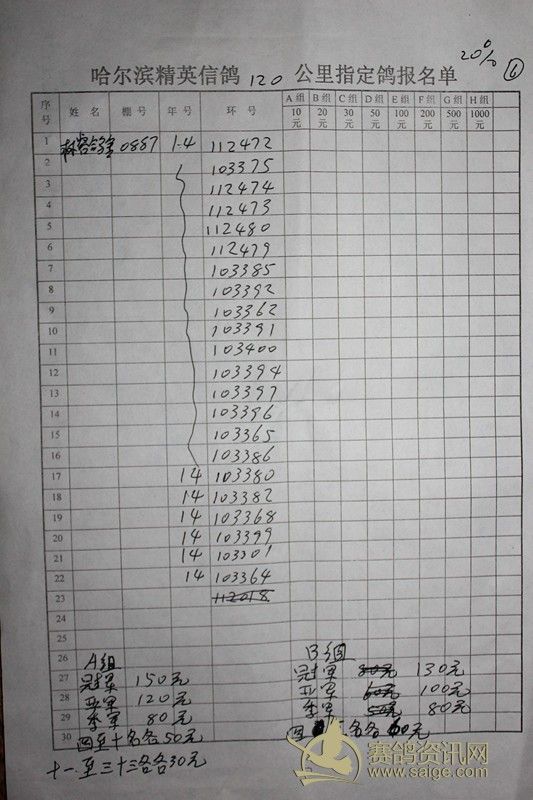 20% 6
哈尔滨精英信鸽 120 公里指定鸽报名单
序号 姓名 棚号 年号 环号 A组 10元 B组 20元 C组 30元 D组 50元 E组 100元 F组 200元 G组 500元 H组 1000元
1 0887 14 112472
2 103375
3 112474
4 112473
5 112480
6 112479
7 103385
8 103392
9 103362
10 103391
11 103400
12 103394
13 103397
14 103396
15 103365
16 103386
17 14 103380
18 14 103382
19 14 103368
20 14 103399
21 14
22 14 103364
23 112018
24
25
26 A组 B组
27 冠军 150元 冠军 80元 130元
28 亚军 120元 亚军 60元 100元
29 季军 80元 季军 50元 80元
30 四至十名各50元 四 名各60元
十一至三十三名各30元
赛鸽资讯网
www.saige.com